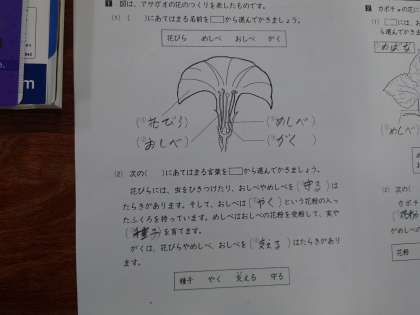 1 図は、アサガオの花のつくりを表したものです。
(1) ( )にあてはまる名前を□から選んでかきましょう。
花びら めしべ おしべ がく
(①花びら)
(②おしべ)
(③めしべ)
(④がく)
(2) 次の( )にあてはまる言葉を□から選んでかきましょう。
花びらには、虫をひきつけたり、おしべやめしべを(①守る)は
たらきがあります。そして、おしべは(②やく)という花粉の入っ
たふくろを持っています。めしべはおしべの花粉を受粉して、実や
(③種子)を育てます。
がくは、花びらやめしべ、おしべを(④支える)はたらきがあり
ます。
種子 やく 支える 守る
2 カボチャの花に
(1) □には、お
ら選んでか
めばな
めしべ
(2) 次の(
カボ
花粉
がめしべの
花粉